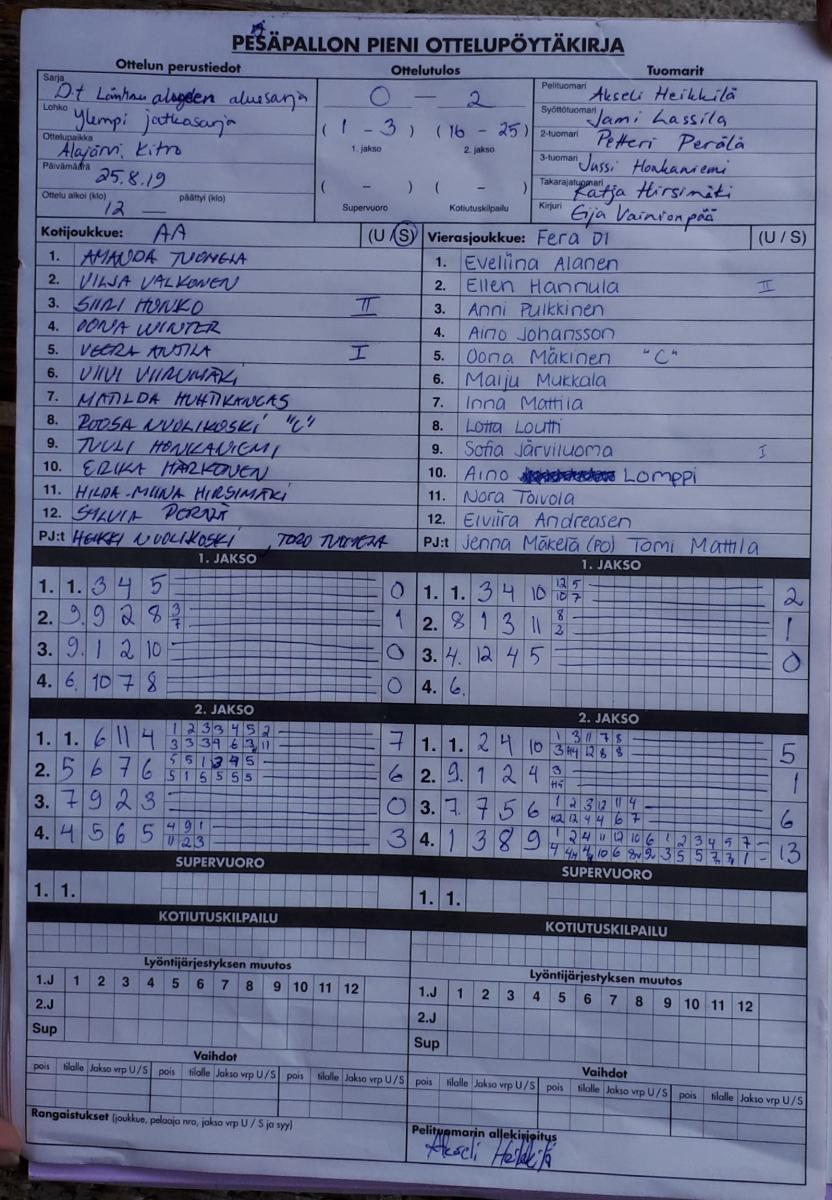 PESÄPALLON PIENI OTTELUPÖYTÄKIRJA
Ottelun perustiedot Ottelutulos Tuomarit
Sarja D-t alueen aluesarja
Lohko Ylempi jatkosarja
Ottelupaikka Alajärvi, Kitro
Päivämäärä 25.8.19
Ottelu alkoi (klo) 12 — päättyi (klo)
0 — 2
(1 - 3) (16 - 25)
1. jakso 2. jakso
( - ) ( - )
Supervuoro Kotiutuskilpailu
Pelituomari Akseli Heikkilä
Syöttötuomari Jami Lassila
2-tuomari Petteri Perälä
3-tuomari Jussi Honkaniemi
Takarajatuomari Katja Hirsimäki
Kirjuri Eija Vainionpää
Kotijoukkue: AA (U / S)
1. AMANDA TUOMELA
2. VILJA VALKONEN
3. SIIRI HONKO II
4. OONA WINTER
5. VEERA ANTILA I
6. VIIVI VIIRUMÄKI
7. MATILDA HUHTIKANGAS
8. ROOSA NUOLIKOSKI "C"
9. TUULI HONKANIEMI
10. ERIKA HARKONEN
11. HILDA-MIINA HIRSIMÄKI
12. SYLVIA PERNÄ
PJ:t HEIKKI NUOLIKOSKI, TUOMELA
Vierasjoukkue: Fera D1 (U / S)
1. Eveliina Alanen
2. Ellen Hannula II
3. Anni Pulkkinen
4. Aino Johansson
5. Oona Mäkinen "C"
6. Maiju Mukkala
7. Inna Mattila
8. Lotta Loutti
9. Sofia Järviluoma I
10. Aino Lomppi
11. Nora Toivola
12. Elviira Andreasen
PJ:t Jenna Mäkelä (PO) Tomi Mattila
1. JAKSO
1. 1. 3 4 5 0
2. 9. 9 2 8 3 7 1
3. 9. 1 2 10 0
4. 6. 10 7 8 0
2. JAKSO
1. 1. 6 11 4 1 2 3 3 4 5 2 7
3 3 3 4 6 3 11
2. 5 6 7 6 6
5 1 5 5 5 5
3. 7 9 2 3 0
4. 4 5 6 5 4 9 1 3
11 2 3
SUPERVUORO
1. 1.
KOTIUTUSKILPAILU
Lyöntijärjestyksen muutos
1.J 1 2 3 4 5 6 7 8 9 10 11 12
2.J
Sup
Vaihdot
pois tilalle Jakso vrp U/S pois tilalle Jakso vrp U/S pois tilalle Jakso vrp U/S
Rangaistukset (joukkue, pelaaja nro, jakso vrp U / S ja syy)
1. JAKSO
1. 1. 3 4 10 12 5 2
10 7
2. 8 1 3 11 8 2 1
3. 4. 12 4 5 0
4. 6.
2. JAKSO
1. 1. 2 4 10 1 3 11 7 8 5
2. 9. 1 2 4 3 1
3. 7. 7 5 6 1 2 3 12 11 4 6
12 12 4 4 6 7
4. 1 3 8 9 1 2 4 11 12 10 6 1 2 3 4 5 7 - 13
SUPERVUORO
1. 1.
KOTIUTUSKILPAILU
Lyöntijärjestyksen muutos
1.J 1 2 3 4 5 6 7 8 9 10 11 12
2.J
Sup
Vaihdot
pois tilalle Jakso vrp U/S pois tilalle Jakso vrp U/S pois tilalle Jakso vrp U/S
Pelituomarin allekirjoitus
Akseli Heikkilä